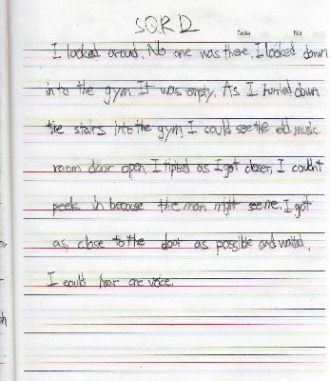 SQRD
Date No
I looked around. No one was there. I looked down
into the gym It was empty. As I hurried down
the stairs into the gym, I could see the old music
room door open. I tiptoed as I got closer, I couldn't
peek in because the man might see me. I got
as close to the door as possible and waited.
I could hear one voice.